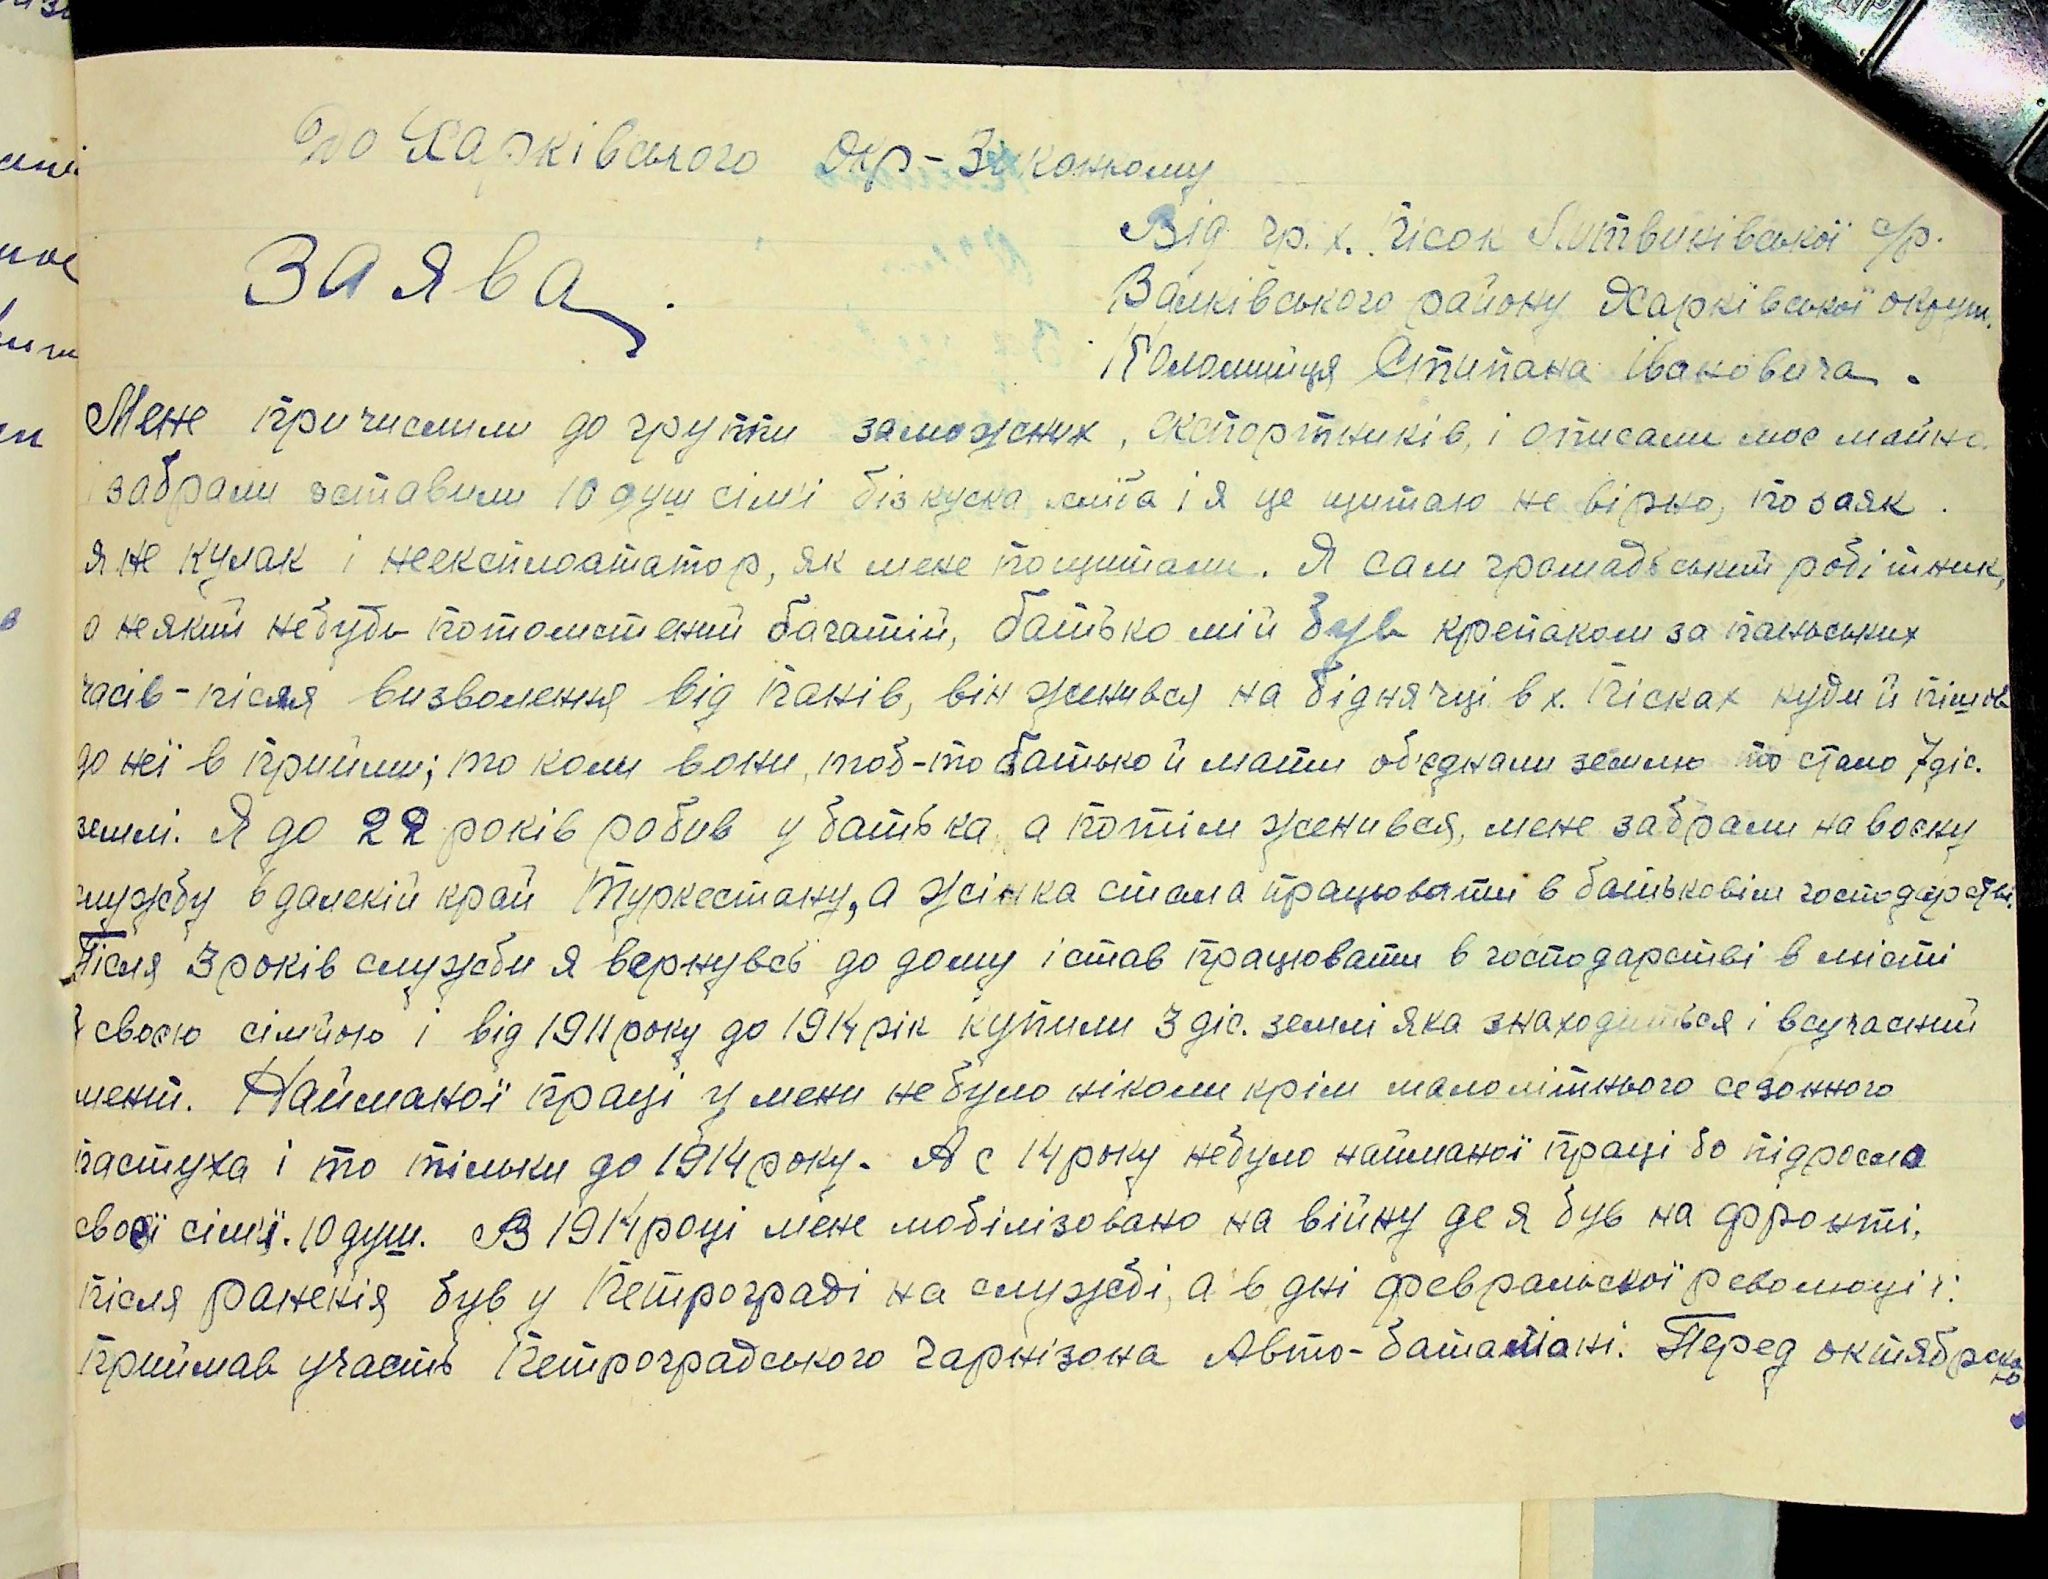 До Харківського Окр-Зіконкому
Від гр. х. Пісок Литвинівської с/р.
ЗАЯВА.
Валківського району Харківської округи.
Коломийця Стипана Івановича.
Мене причислили до групи заможних, экспортників, і описали моє майно
забрали зставили 10 душ сім'ї біз куска хліба і я це щитаю не вірно, позаяк
я не кулак і неексплоататор, як мене пощитали. Я сам громадський робітник,
а неякий небудь потомствений багатій, батько мій був крепаком за паньських
часів - після визволення від панів, він женився на біднячці в х. Пісках куди й пішов
до неї в прийми; то коли вони, тоб-то батько й мати об'єднали землю то стало 7 діс.
землі. Я до 22 років робив у батька, а потім женився, мене забрали на воєну
службу в далекій край Туркестану, а жінка стала працювати в батьковім господарстві.
Після 3 років служби я вернувсь до дому і став працювати в господарстві в місті
з своєю сім'йою і від 1911 року до 1914 рік купили 3 діс. землі яка знаходиться і всучасний
мент. Найманої праці у мени небуло ніколи крім малолітнього сезонного
пастуха і то тільки до 1914 року. А с 14 року небуло найманої праці бо підросла
своєї сім'ї. 10 душ. В 1914 році мене мобілізовано на війну де я був на фронті,
після раненія був у Петрограді на службі, а в дні февральської революції:
приймав участь Петроградського гарнізона Авто-баталіоні. Перед октябрсько